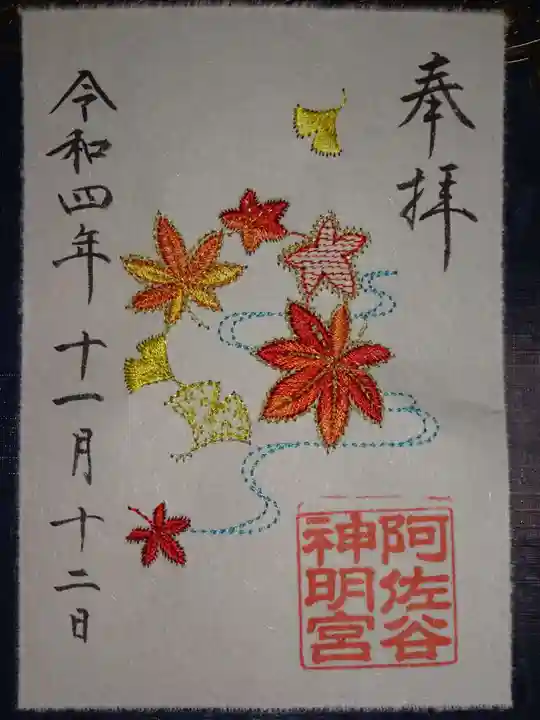 奉拝
令和四年 十一月 十二日
阿佐谷
神明宮